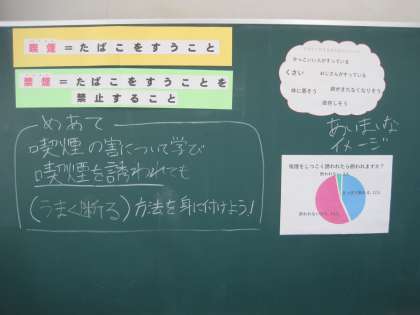 喫煙＝たばこをすうこと
禁煙＝たばこをすうことを
禁止すること
めあて
喫煙の害について学び
喫煙を誘われても
(うまく断る)方法を身に付けよう!
かっこいい人がすっている
くさい
おじさんがすっている
体に悪そう
歯がきたなくなりそう
依存しそう
あいまいな
イメージ
喫煙をしつこく誘われたら断われますか?